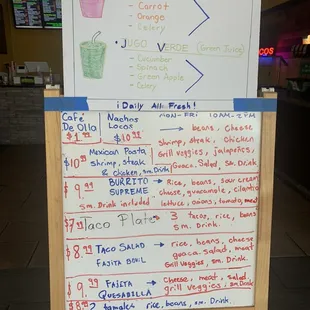 Carrot
Orange
Celery
Jugo Verde (Green Juice)
Cucumber
Spinach
Green Apple
Celery
¡Daily All Fresh!
Café De Olla
Nachos Locos
MON-FRI 10AM-2PM
$10.99 → beans, Cheese
Shrimp, steak, chicken
Grill veggies, jalapeños,
Guaca, Salad, sm. Drink
$10.99 Mexican Pasta,
Shrimp, steak
& chicken, sm. Drink
$9.99 BURRITO SUPREME → Rice, beans, sour cream
cheese, guacamole, cilantro
sm. Drink included
lettuce, onions, tomato, meat
Taco Plate → 3 tacos, rice, beans
sm. Drink.
$8.99 TACO SALAD
FAJITA BOWL
→ rice, beans, cheese
guaca, salad, meat
Grill veggies, sm. Drink.
$9.99 FAJITA QUESADILLA → Cheese, meat, salad,
grill veggies, sm. Drink
2 tamales rice, beans, sm. Drink.